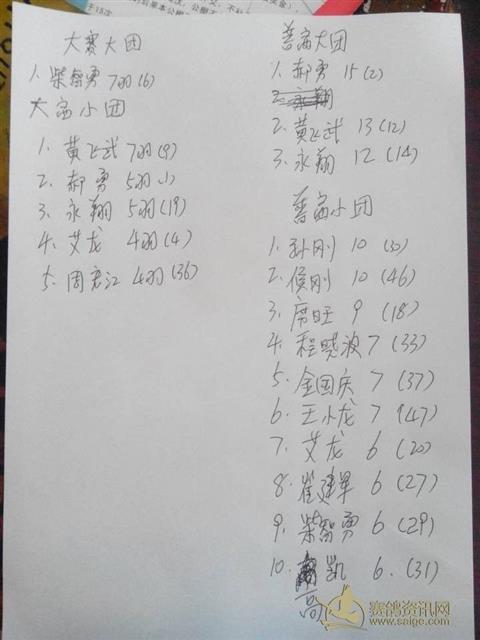 大赛大团
1、柴智勇 7羽(6)
大富小团
1、黄飞武 7羽(9)
2、郝勇 5羽(1)
3、永翔 5羽(19)
4、艾龙 4羽(4)
5、周君江 4羽(36)
普富大团
1、郝勇 15(2)
2、永翔
2、黄飞武 13(12)
3、永翔 12(14)
普富小团
1、孙刚 10 (30)
2、侯刚 10 (46)
3、席旺 9 (18)
4、程晓波 7 (33)
5、金国庆 7 (37)
6、王小龙 7 (47)
7、艾龙 6 (20)
8、崔建军 6 (27)
9、柴智勇 6 (29)
10、凯 6.(31)
高
赛鸽资讯网
www.saige.com